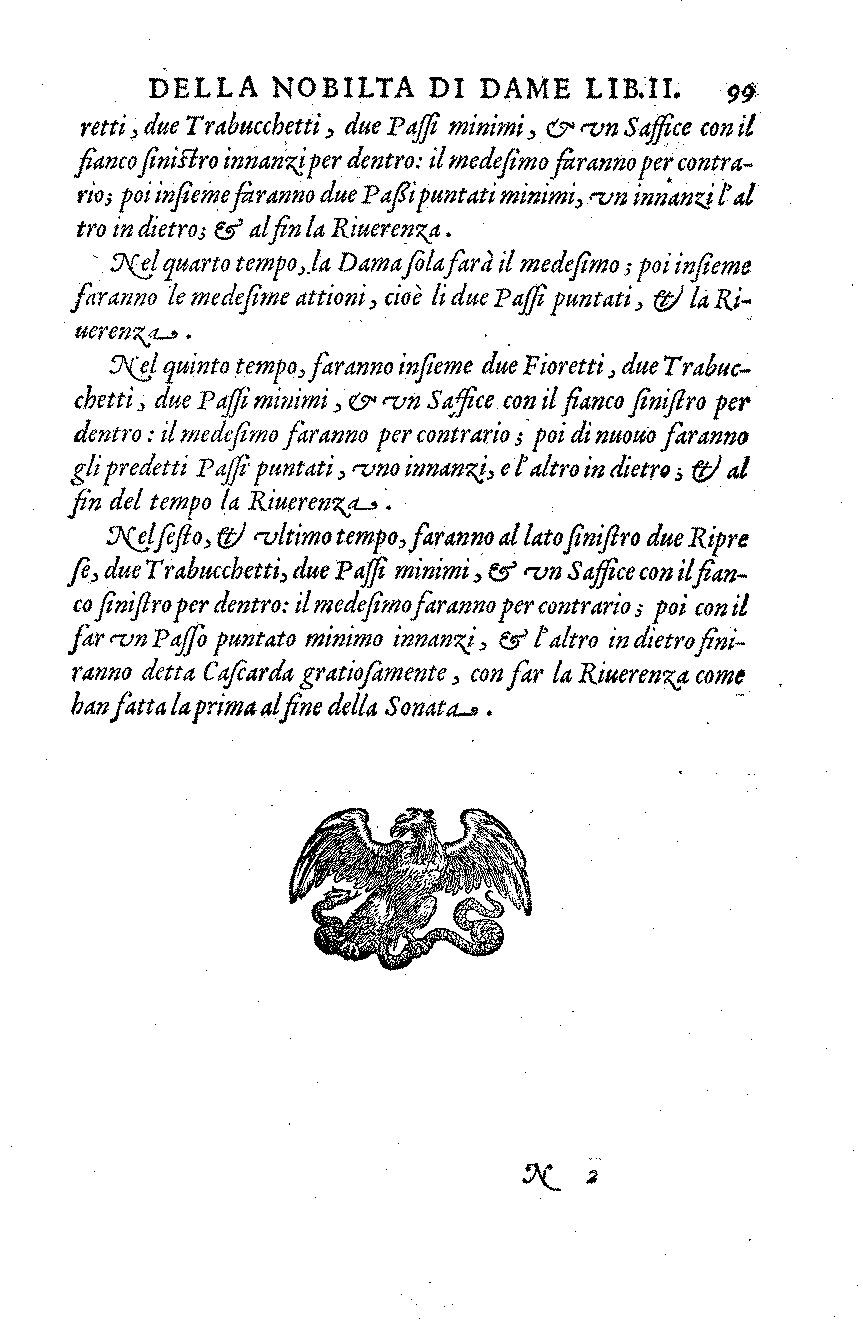 DELLA NOBILTA DI DAME LIB.II. 99
retti, due Trabucchetti, due Paſſi minimi, & vn Saffice con il
fianco ſiniſtro innanzi per dentro: il medeſimo faranno per contra-
rio; poi inſieme faranno due Paßi puntati minimi, vn innanzi l'al
tro in dietro; & al fin la Riuerenza.
Nel quarto tempo, la Dama ſola farà il medeſimo; poi inſieme
faranno le medeſime attioni, cioè li due Paſſi puntati, & la Ri-
uerenza.
Nel quinto tempo, faranno inſieme due Fioretti, due Trabuc-
chetti, due Paſſi minimi, & vn Saffice con il fianco ſiniſtro per
dentro: il medeſimo faranno per contrario; poi di nuouo faranno
gli predetti Paſſi puntati, vno innanzi, e l'altro in dietro; & al
fin del tempo la Riuerenza.
Nel ſeſto, & vltimo tempo, faranno al lato ſiniſtro due Ripre
ſe, due Trabucchetti, due Paſſi minimi, & vn Saffice con il fian-
co ſiniſtro per dentro: il medeſimo faranno per contrario; poi con il
far vn Paſſo puntato minimo innanzi, & l'altro in dietro fini-
ranno detta Caſcarda gratioſamente, con far la Riuerenza come
han fatta la prima al fine della Sonata.
N 2